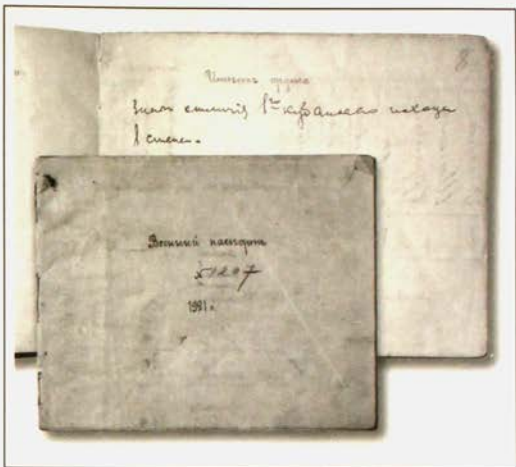 8
ордена
Знакъ отличія 1го Кубанскаго похода
степен.
Военный паспортъ
1921 г.